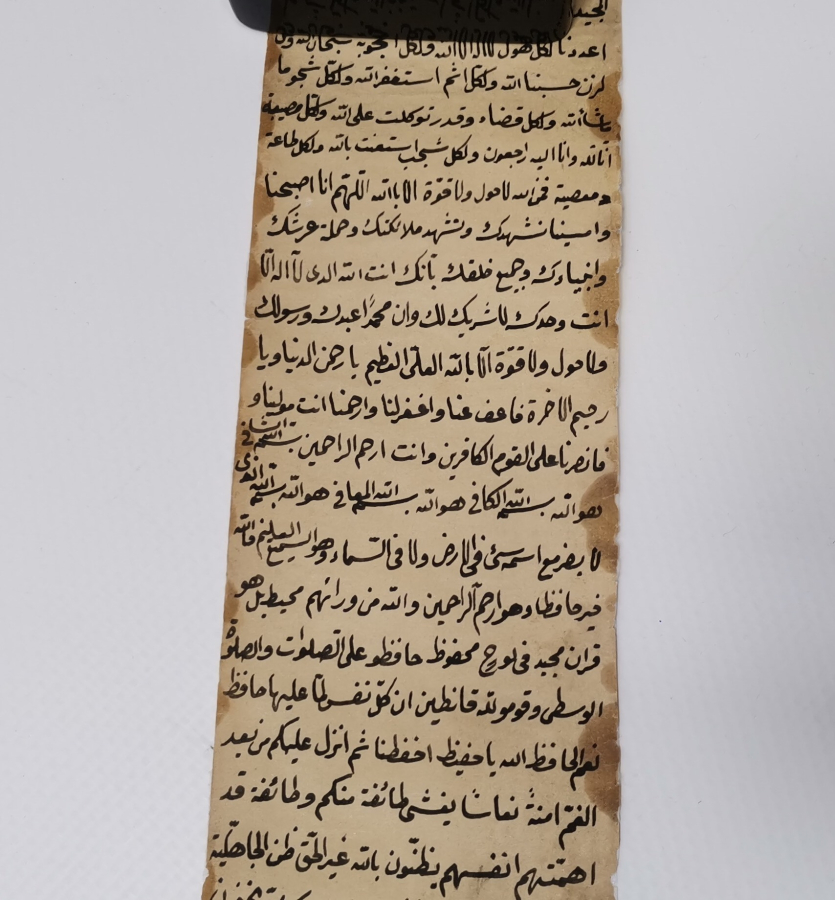 المجيد
اعددنا لكل هول لا اله الا الله ولكل اعجوبة سبحان الله ولكل
كرن حسبنا الله ولكل اثم استغفر الله ولكل شجو ما
شاء الله ولكل قضاء وقدر توكلت على الله ولكل مصيبة
انا لله وانا اليه راجعون ولكل استعنت بالله ولكل طاعة
ومعصية لا حول ولا قوة الا باالله اللهم انا اصبحنا
وامسينا نشهدك ونشهد ملائكتك وحملة عرشك
وانبياءك وجميع خلقك بانك انت الله الذى لا اله الا
انت وحدك لا شريك لك وان محمدا عبدك ورسولك
ولا حول ولا قوة الا بالله العلى العظيم يا رحمن الدنيا ويا
رحيم الاخرة فاعف عنا واغفر لنا وارحمنا انت مولينا و
فانصرنا على القوم الكافرين وانت ارحم الراحمين بسم الله الشافى
هو الله بسم الله الكافى هو الله بسم الله المعافى هو الله بسم الله الذى
لا يضر مع اسمه شئ فى الارض ولا فى السماء وهو السميع العليم فالله
خير حافظا وهو ارحم الراحمين والله من ورائهم محيط بل هو
قران مجيد فى لوح محفوظ حافظو على الصلوات والصلوة
الوسطى وقومو لله قانطين ان كل نفس لما عليها حافظ
نعم الحافظ الله يا حفيظ احفظنا ثم انزل عليكم من بعد
الغم امنة نعاسا يغشى طائفة منكم وطائفة قد
اهمتهم انفسهم يظنون بالله غير الحق ظن الجاهلية